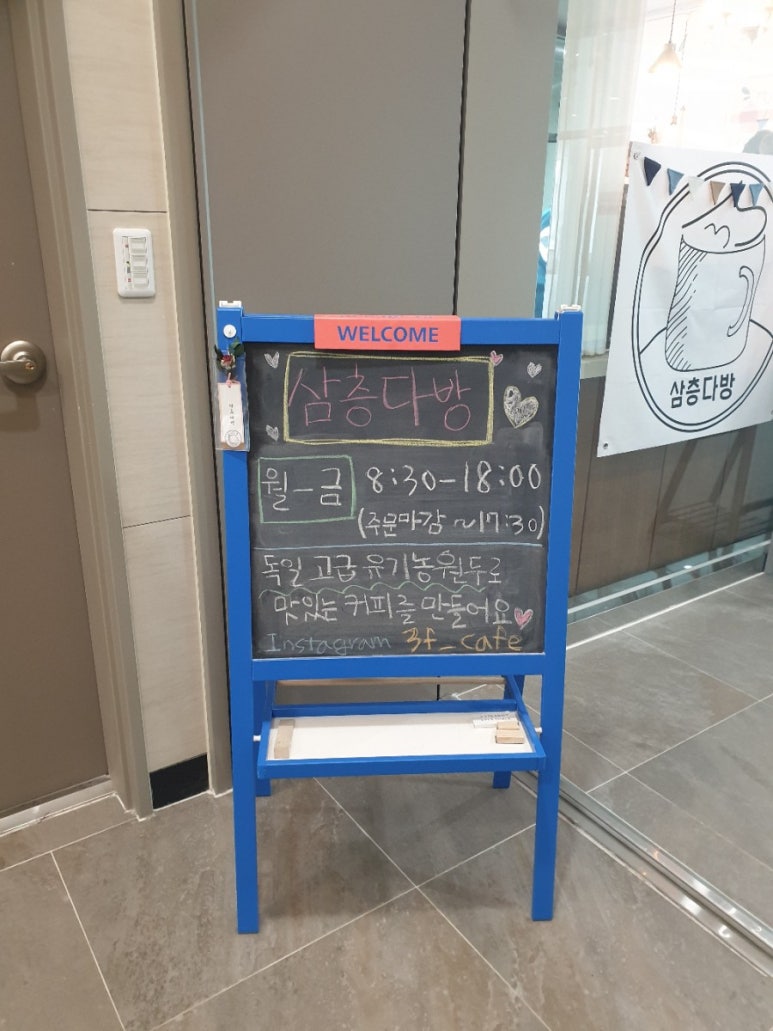 WELCOME
삼층다방
월-금 8:30-18:00
(주문마감 ~17:30)
독일 고급 유기농원두로
맛있는 커피를 만들어요
Instagram 3f_cafe
삼층다방